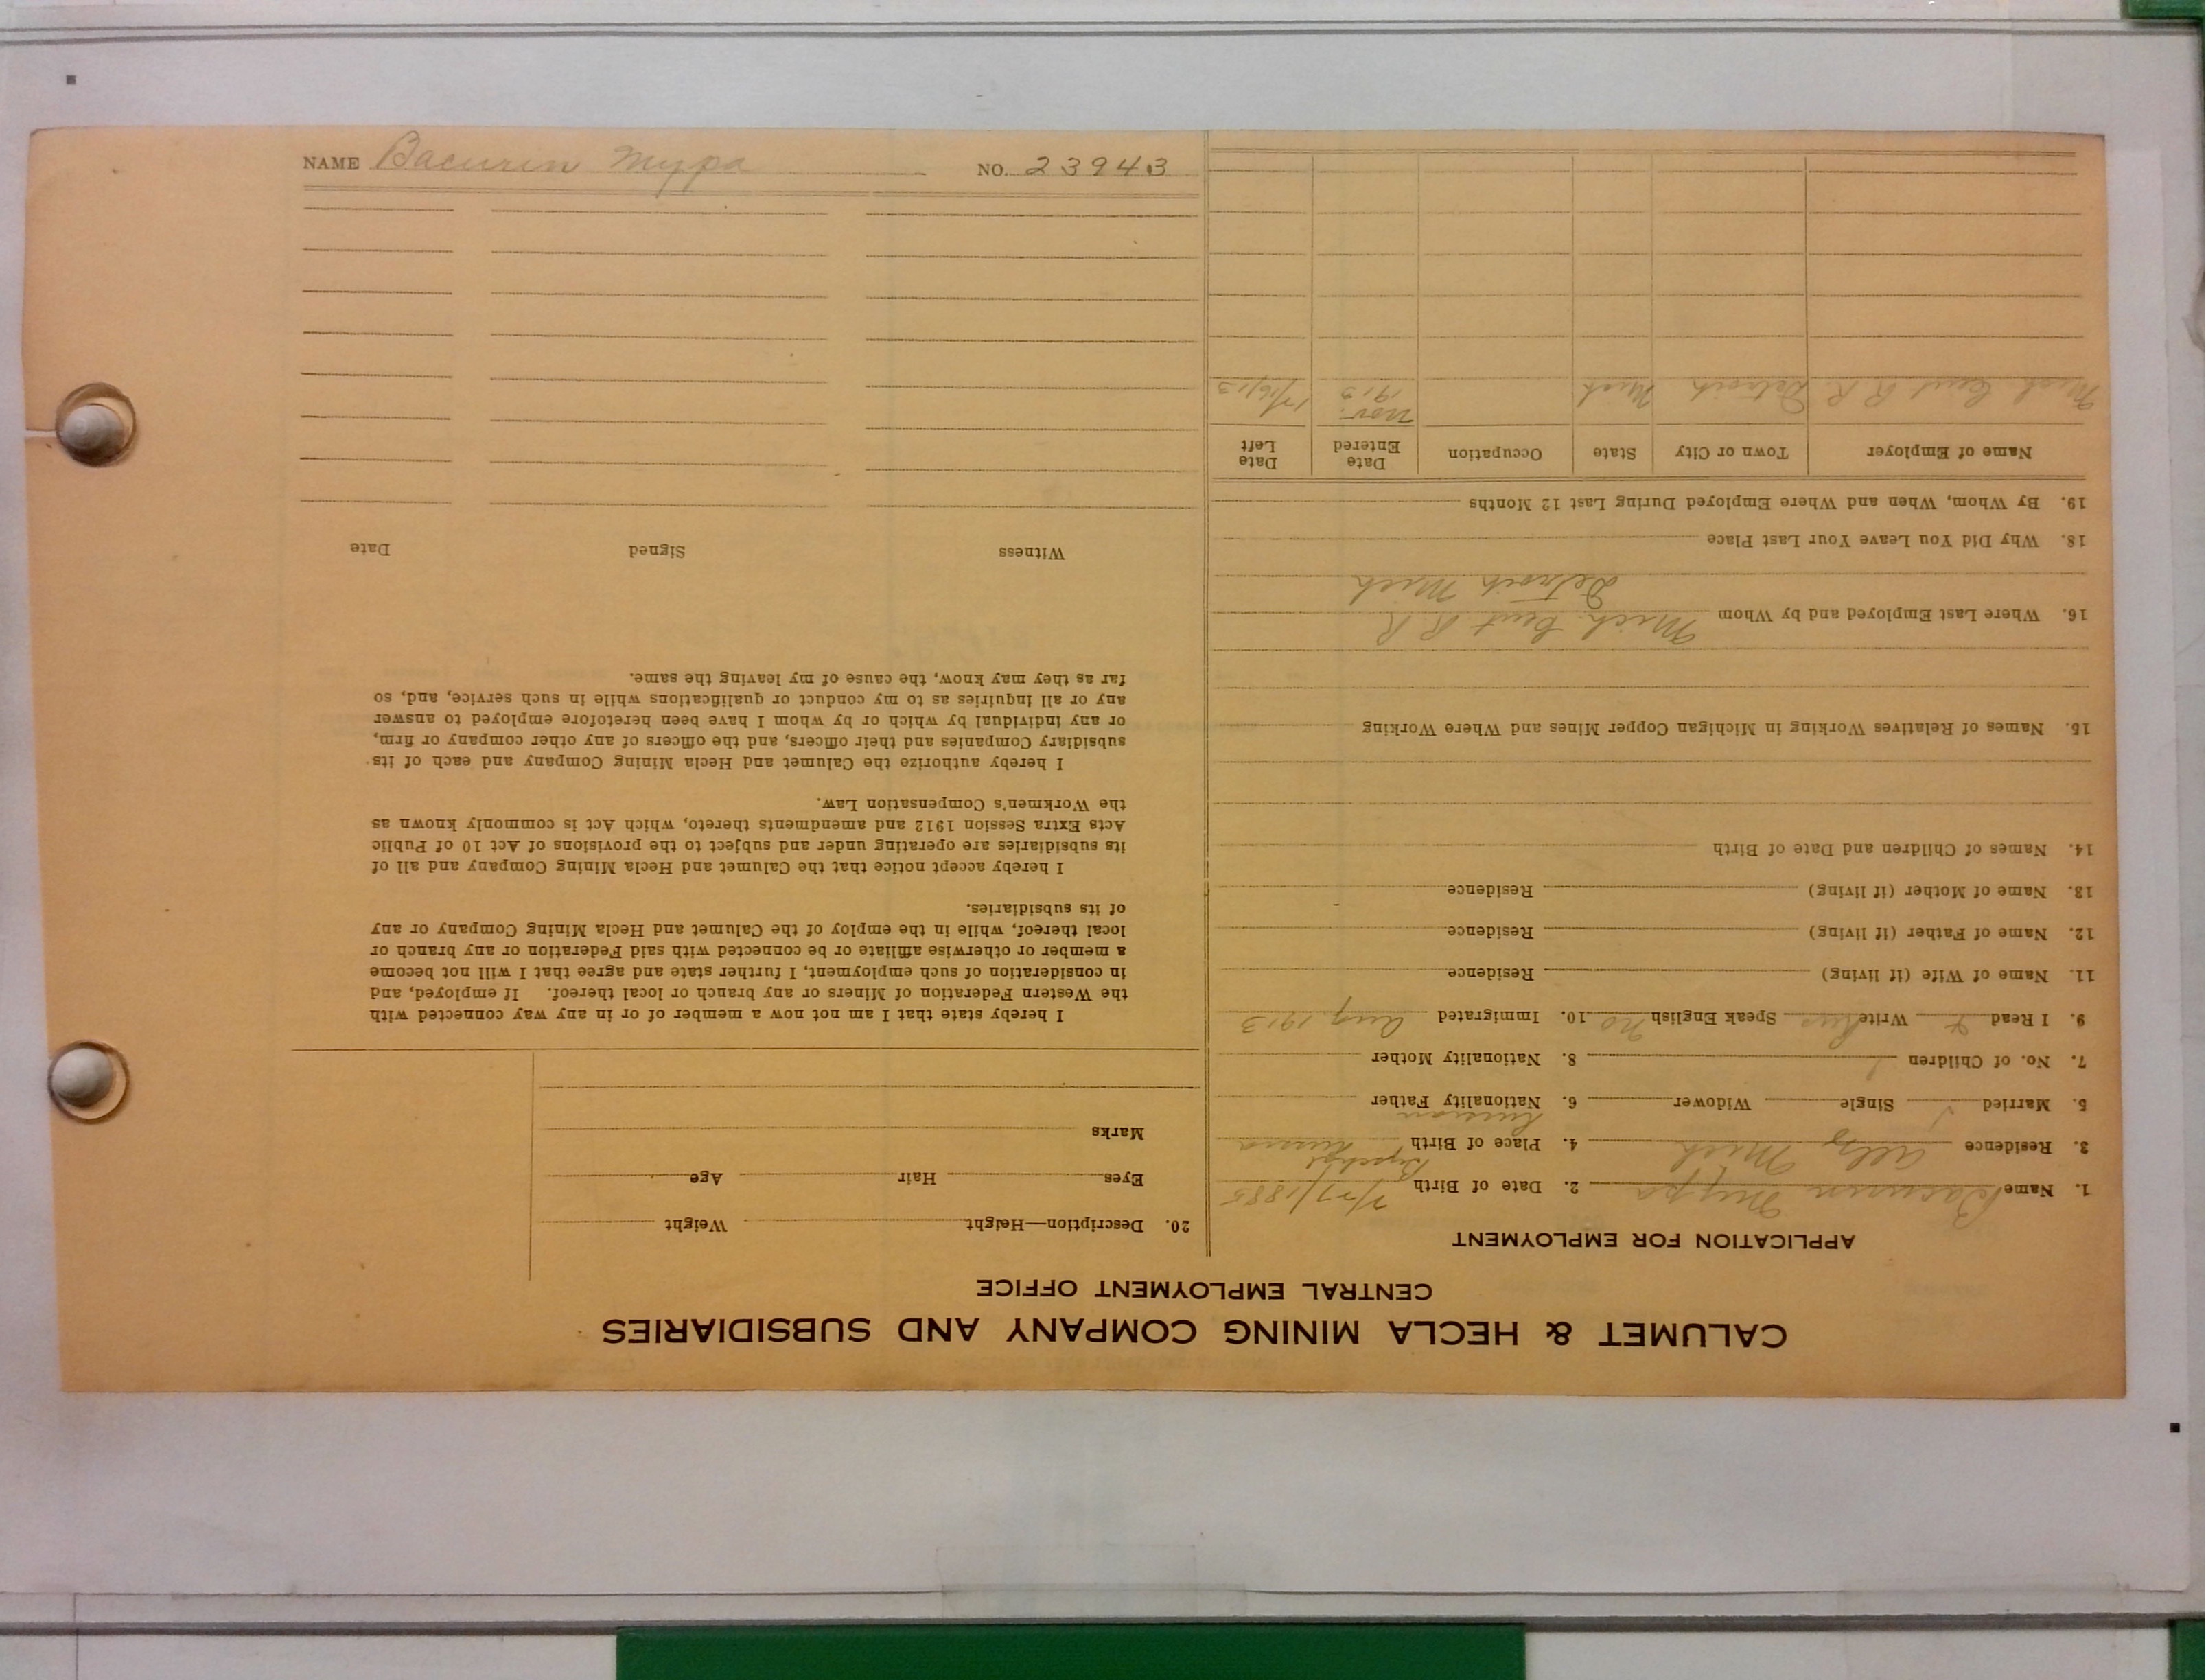 NAME Bacurin Mypa NO. 23943
CALUMET & HECLA MINING COMPANY AND SUBSIDIARIES
CENTRAL EMPLOYMENT OFFICE
APPLICATION FOR EMPLOYMENT
1. Name Bacurin Mypa 2. Date of Birth 7/27/1885
3. Residence Mich 4. Place of Birth Russia
5. Married Single Widower 6. Nationality Father Russian
7. No. of Children 8. Nationality Mother
9. I Read & Write Rus Speak English no 10. Immigrated Aug. 1913
11. Name of Wife (if living) Residence
12. Name of Father (if living) Residence
13. Name of Mother (if living) Residence
14. Names of Children and Date of Birth
15. Names of Relatives Working in Michigan Copper Mines and Where Working
16. Where Last Employed and by Whom Mich Cent R R
Detroit Mich
18. Why Did You Leave Your Last Place
19. By Whom, When and Where Employed During Last 12 Months
Name of Employer Town or City State Occupation Date Entered Date Left
Mich Cent R R Detroit Mich Nov. 1913 12/16/13
20. Description—Height Weight
Eyes Hair Age
Marks
I hereby state that I am not now a member of or in any way connected with
the Western Federation of Miners or any branch or local thereof. If employed, and
in consideration of such employment, I further state and agree that I will not become
a member or otherwise affiliate or be connected with said Federation or any branch or
local thereof, while in the employ of the Calumet and Hecla Mining Company or any
of its subsidiaries.
I hereby accept notice that the Calumet and Hecla Mining Company and all of
its subsidiaries are operating under and subject to the provisions of Act 10 of Public
Acts Extra Session 1912 and amendments thereto, which Act is commonly known as
the Workmen's Compensation Law.
I hereby authorize the Calumet and Hecla Mining Company and each of its
subsidiary Companies and their officers, and the officers of any other company or firm,
or any individual by which or by whom I have been heretofore employed to answer
any or all inquiries as to my conduct or qualifications while in such service, and, so
far as they may know, the cause of my leaving the same.
Witness Signed Date